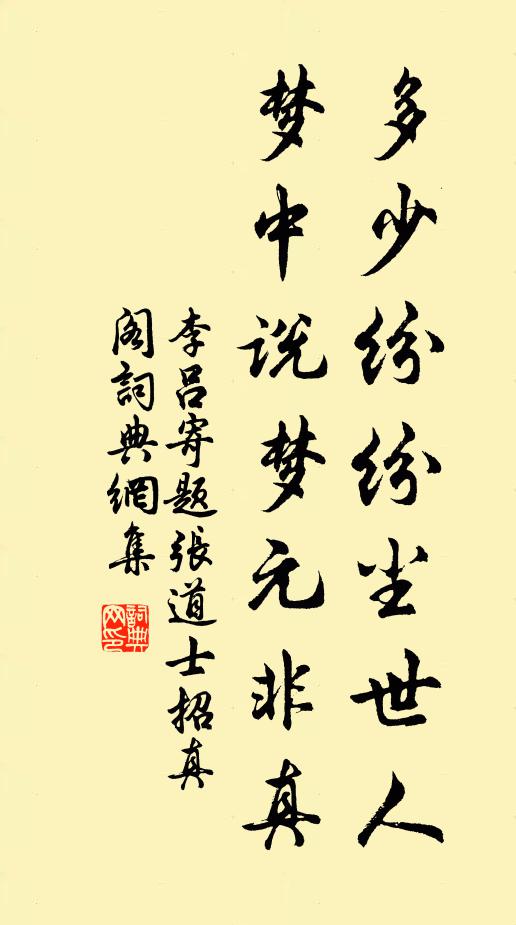 多少纷纷尘世人
梦中说梦元非真
李吕寄题张道士招真
阁词典网集
詞典
网印